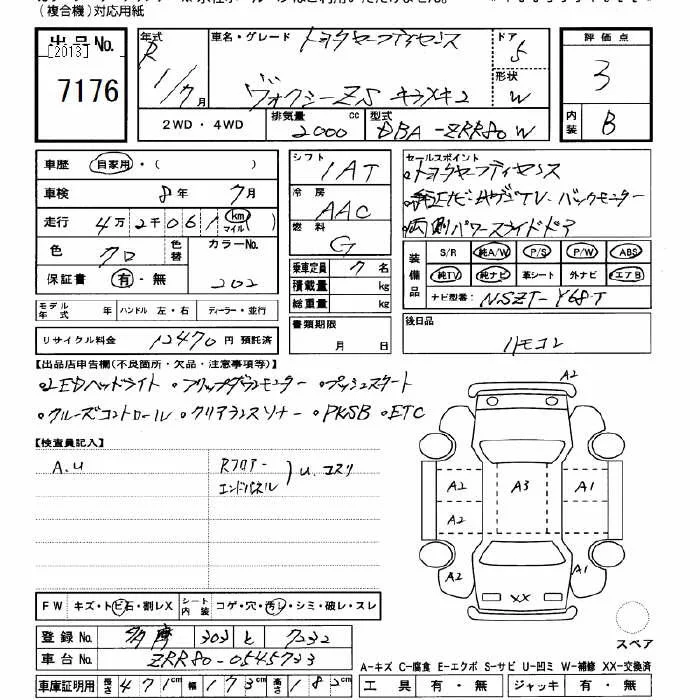 (複合機)対応用紙
出品No.
[2013]
7176
年式
R
1/7月
車名・グレード
トヨタセーフティセンス
ヴォクシーZS キラメキ2
ドア
5
形状
W
2WD・4WD
排気量
2000
cc
型式
DBA-ZRR80W
評価点
3
内装
B
車歴 自家用・( )
車検 8年 7月
走行 4万2千061 km マイル
色 クロ 色替
カラーNo.
202
保証書 有・無
モデル年式 年 ハンドル 左・右 ディーラー・並行
リサイクル料金 12470円 預託済
シフト 1AT
冷房 AAC
燃料 G
乗車定員 7名
積載量 kg
総重量 kg
書類期限
月 日
セールスポイント
・トヨタセーフティセンス
・純正ナビ・地デジTV・バックモニター
・両側パワースライドドア
装備品
S/R 純A/W P/S P/W ABS
純TV 純ナビ 革シート 外ナビ エアB
ナビ型番: NSZT-Y68T
後日品
リモコン
【出品店申告欄(不良箇所・欠品・注意事項等)】
・LEDヘッドライト・フリップダウンモニター・プッシュスタート
・クルーズコントロール・クリアランスソナー・PKSB・ETC
【検査員記入】
A.U
Rフロアー
エンドパネル
)U.コスリ
A2
A2
A3
A1
A2
A1
A2
XX
A2
スペア
FW キズ・トビ石・割レX
シート内装 コゲ・穴・汚レ・シミ・破レ・スレ
登録No. 多摩 303 と 7232
車台No. ZRR80-0545733
車庫証明用 長さ 471cm 幅 173cm 高さ 182cm
A-キズ C-腐食 E-エクボ S-サビ U-凹ミ W-補修 XX-交換済
工具 有・無 ジャッキ 有・無